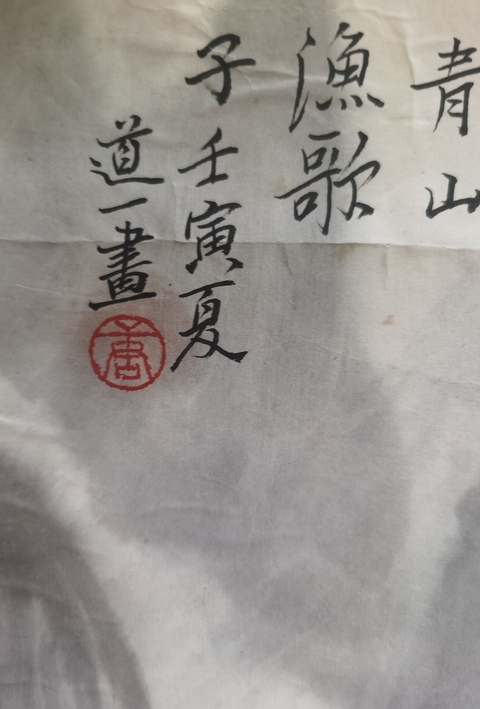 青山
漁歌
子壬寅夏
道一畫
唐